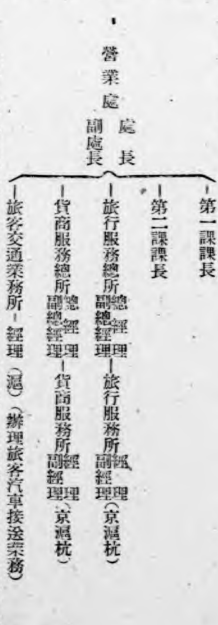 營業處 處長 副處長
第一課課長
第二課課長
旅行服務總所 總經理 副總經理—旅行服務所 經理 副經理(京滬杭)
貨商服務總所 總經理 副總經理—貨商服務所 經理 副經理(京滬杭)
旅客交通業務所—經理(滬)(辦理旅客汽車接送業務)